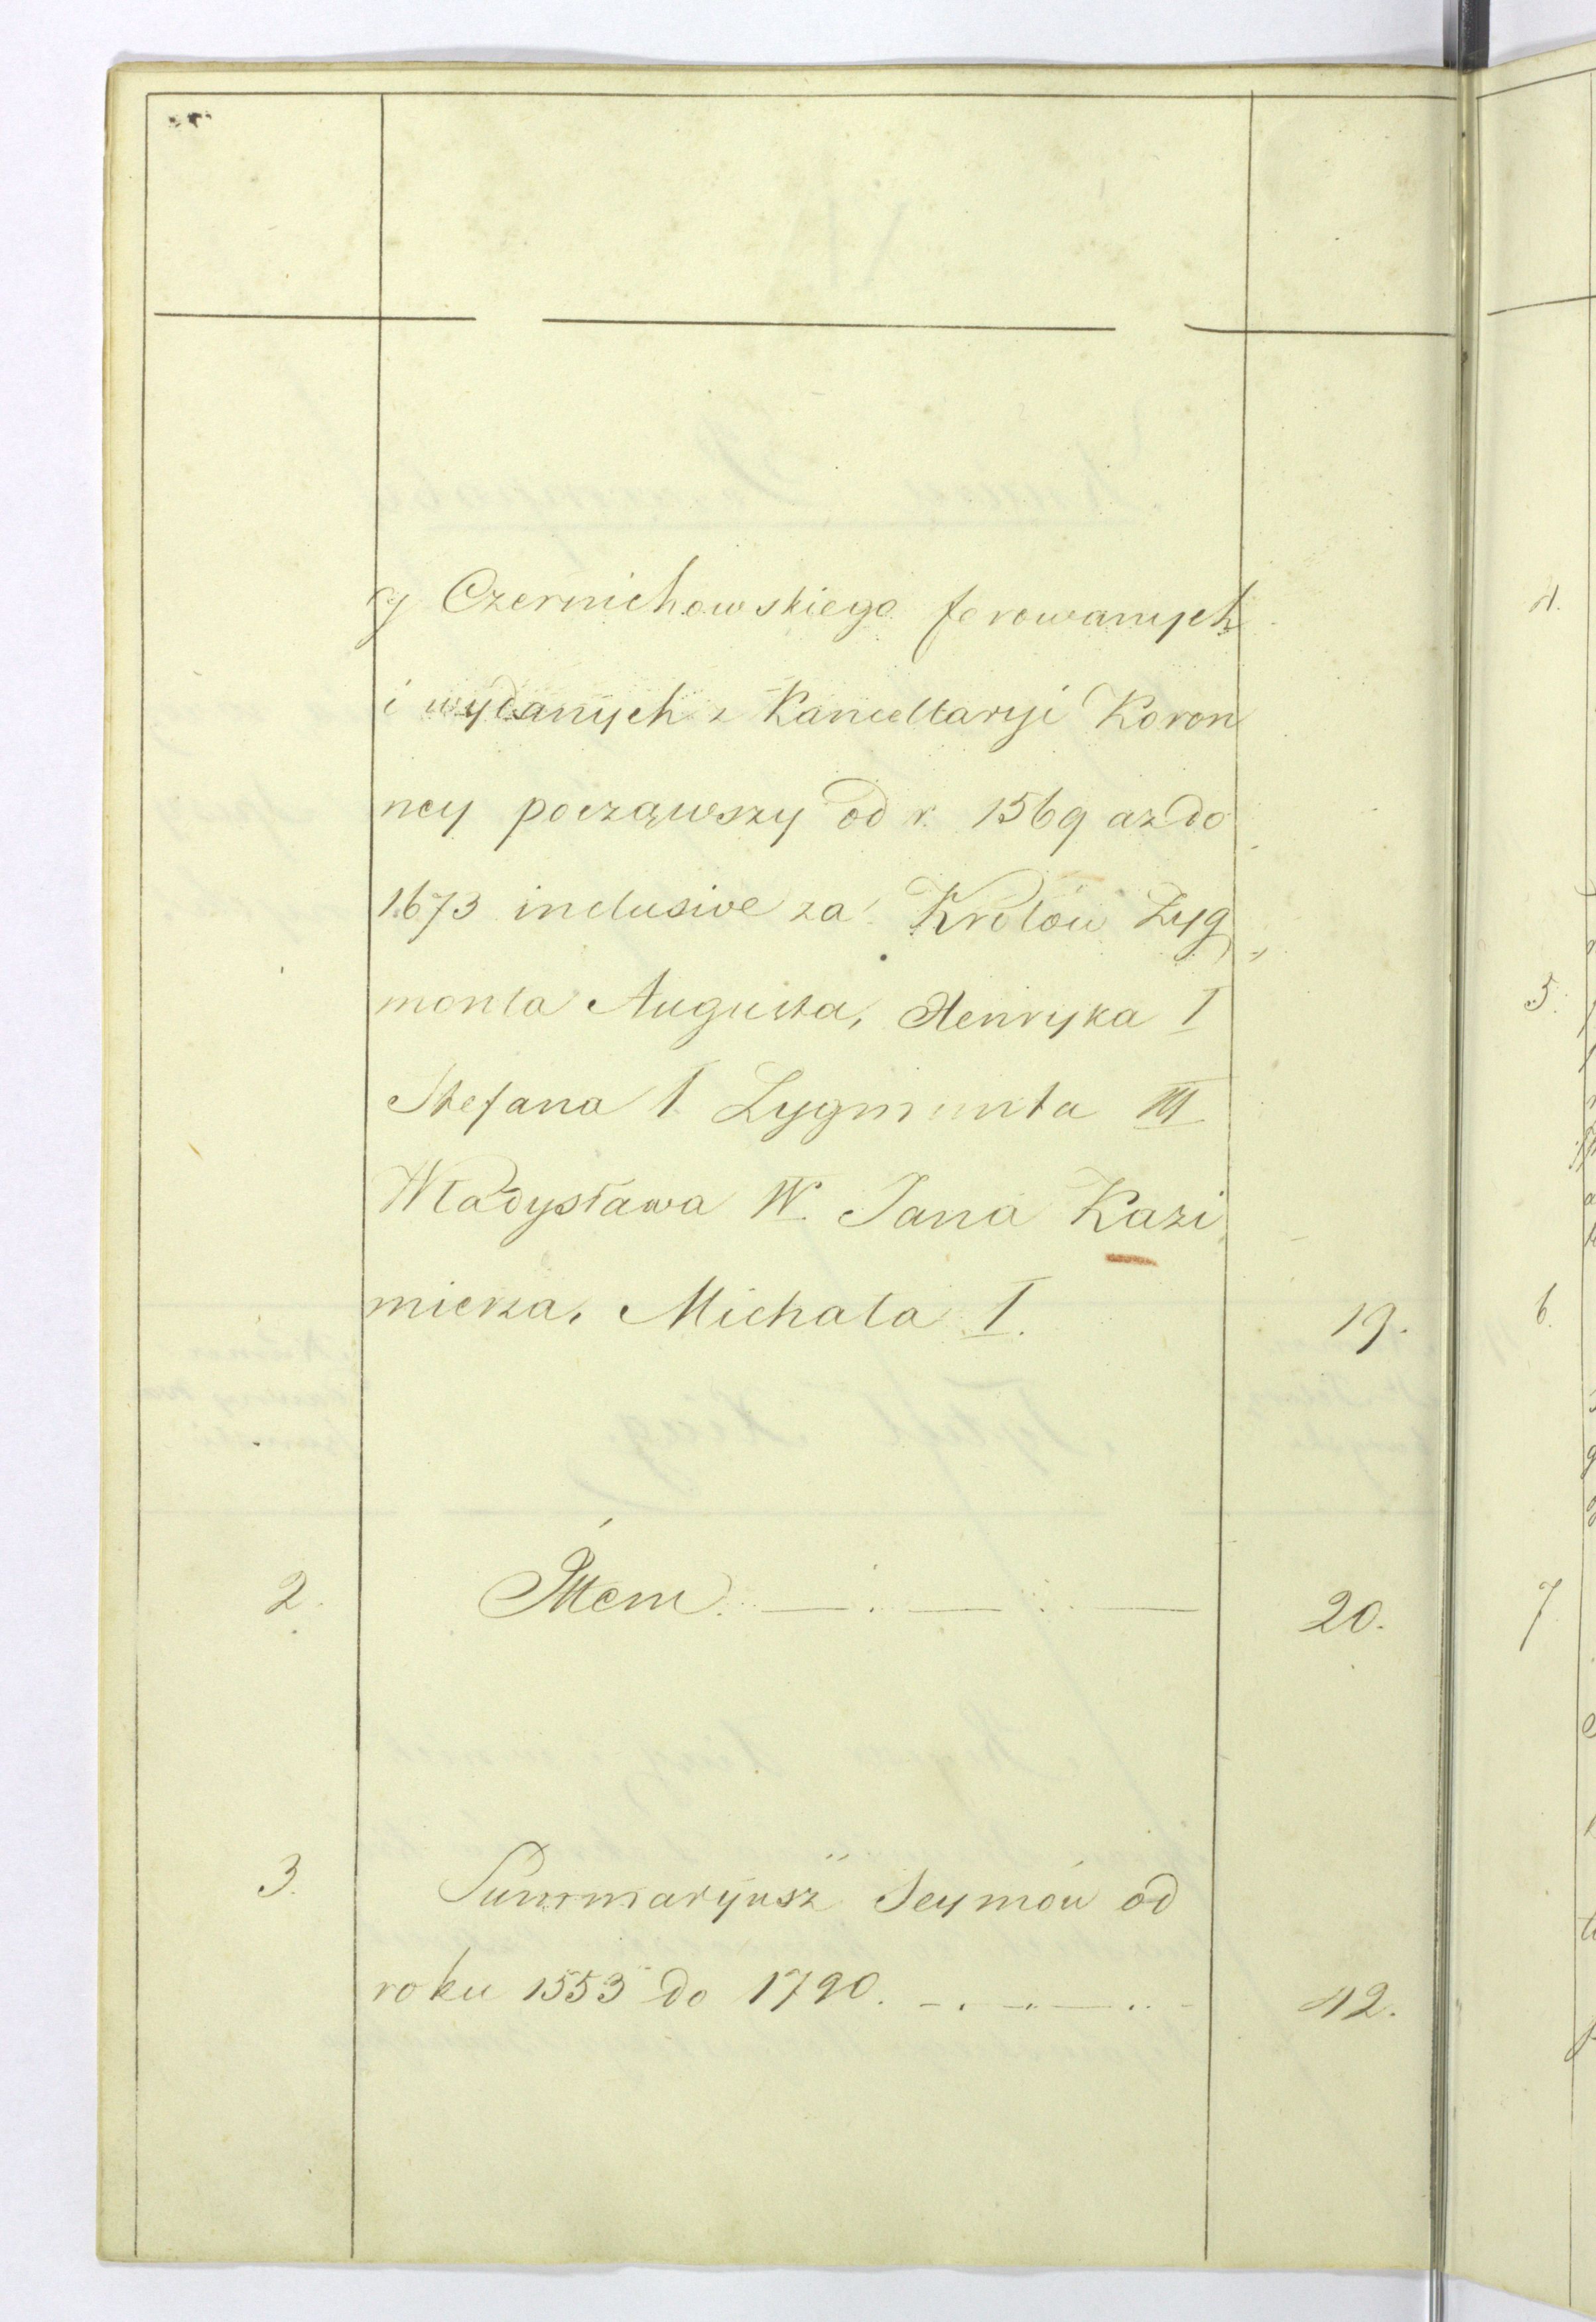 y Czernichowskiego ferowanych
i wydanych z Kancellaryi Koron
ney począwszy od r. 1569 az do
1673 inclusive za Królów Zyg„
monta Augusta, Henryka I
Stefana I Zygmunta III
Władysława IV Jana Kazi
mierza, Michała I. 19.
2. Item. — . — . . — 20.
3. Summaryusz Seymów od
roku 1553 do 1790. 42.
4.
5.
6.
7